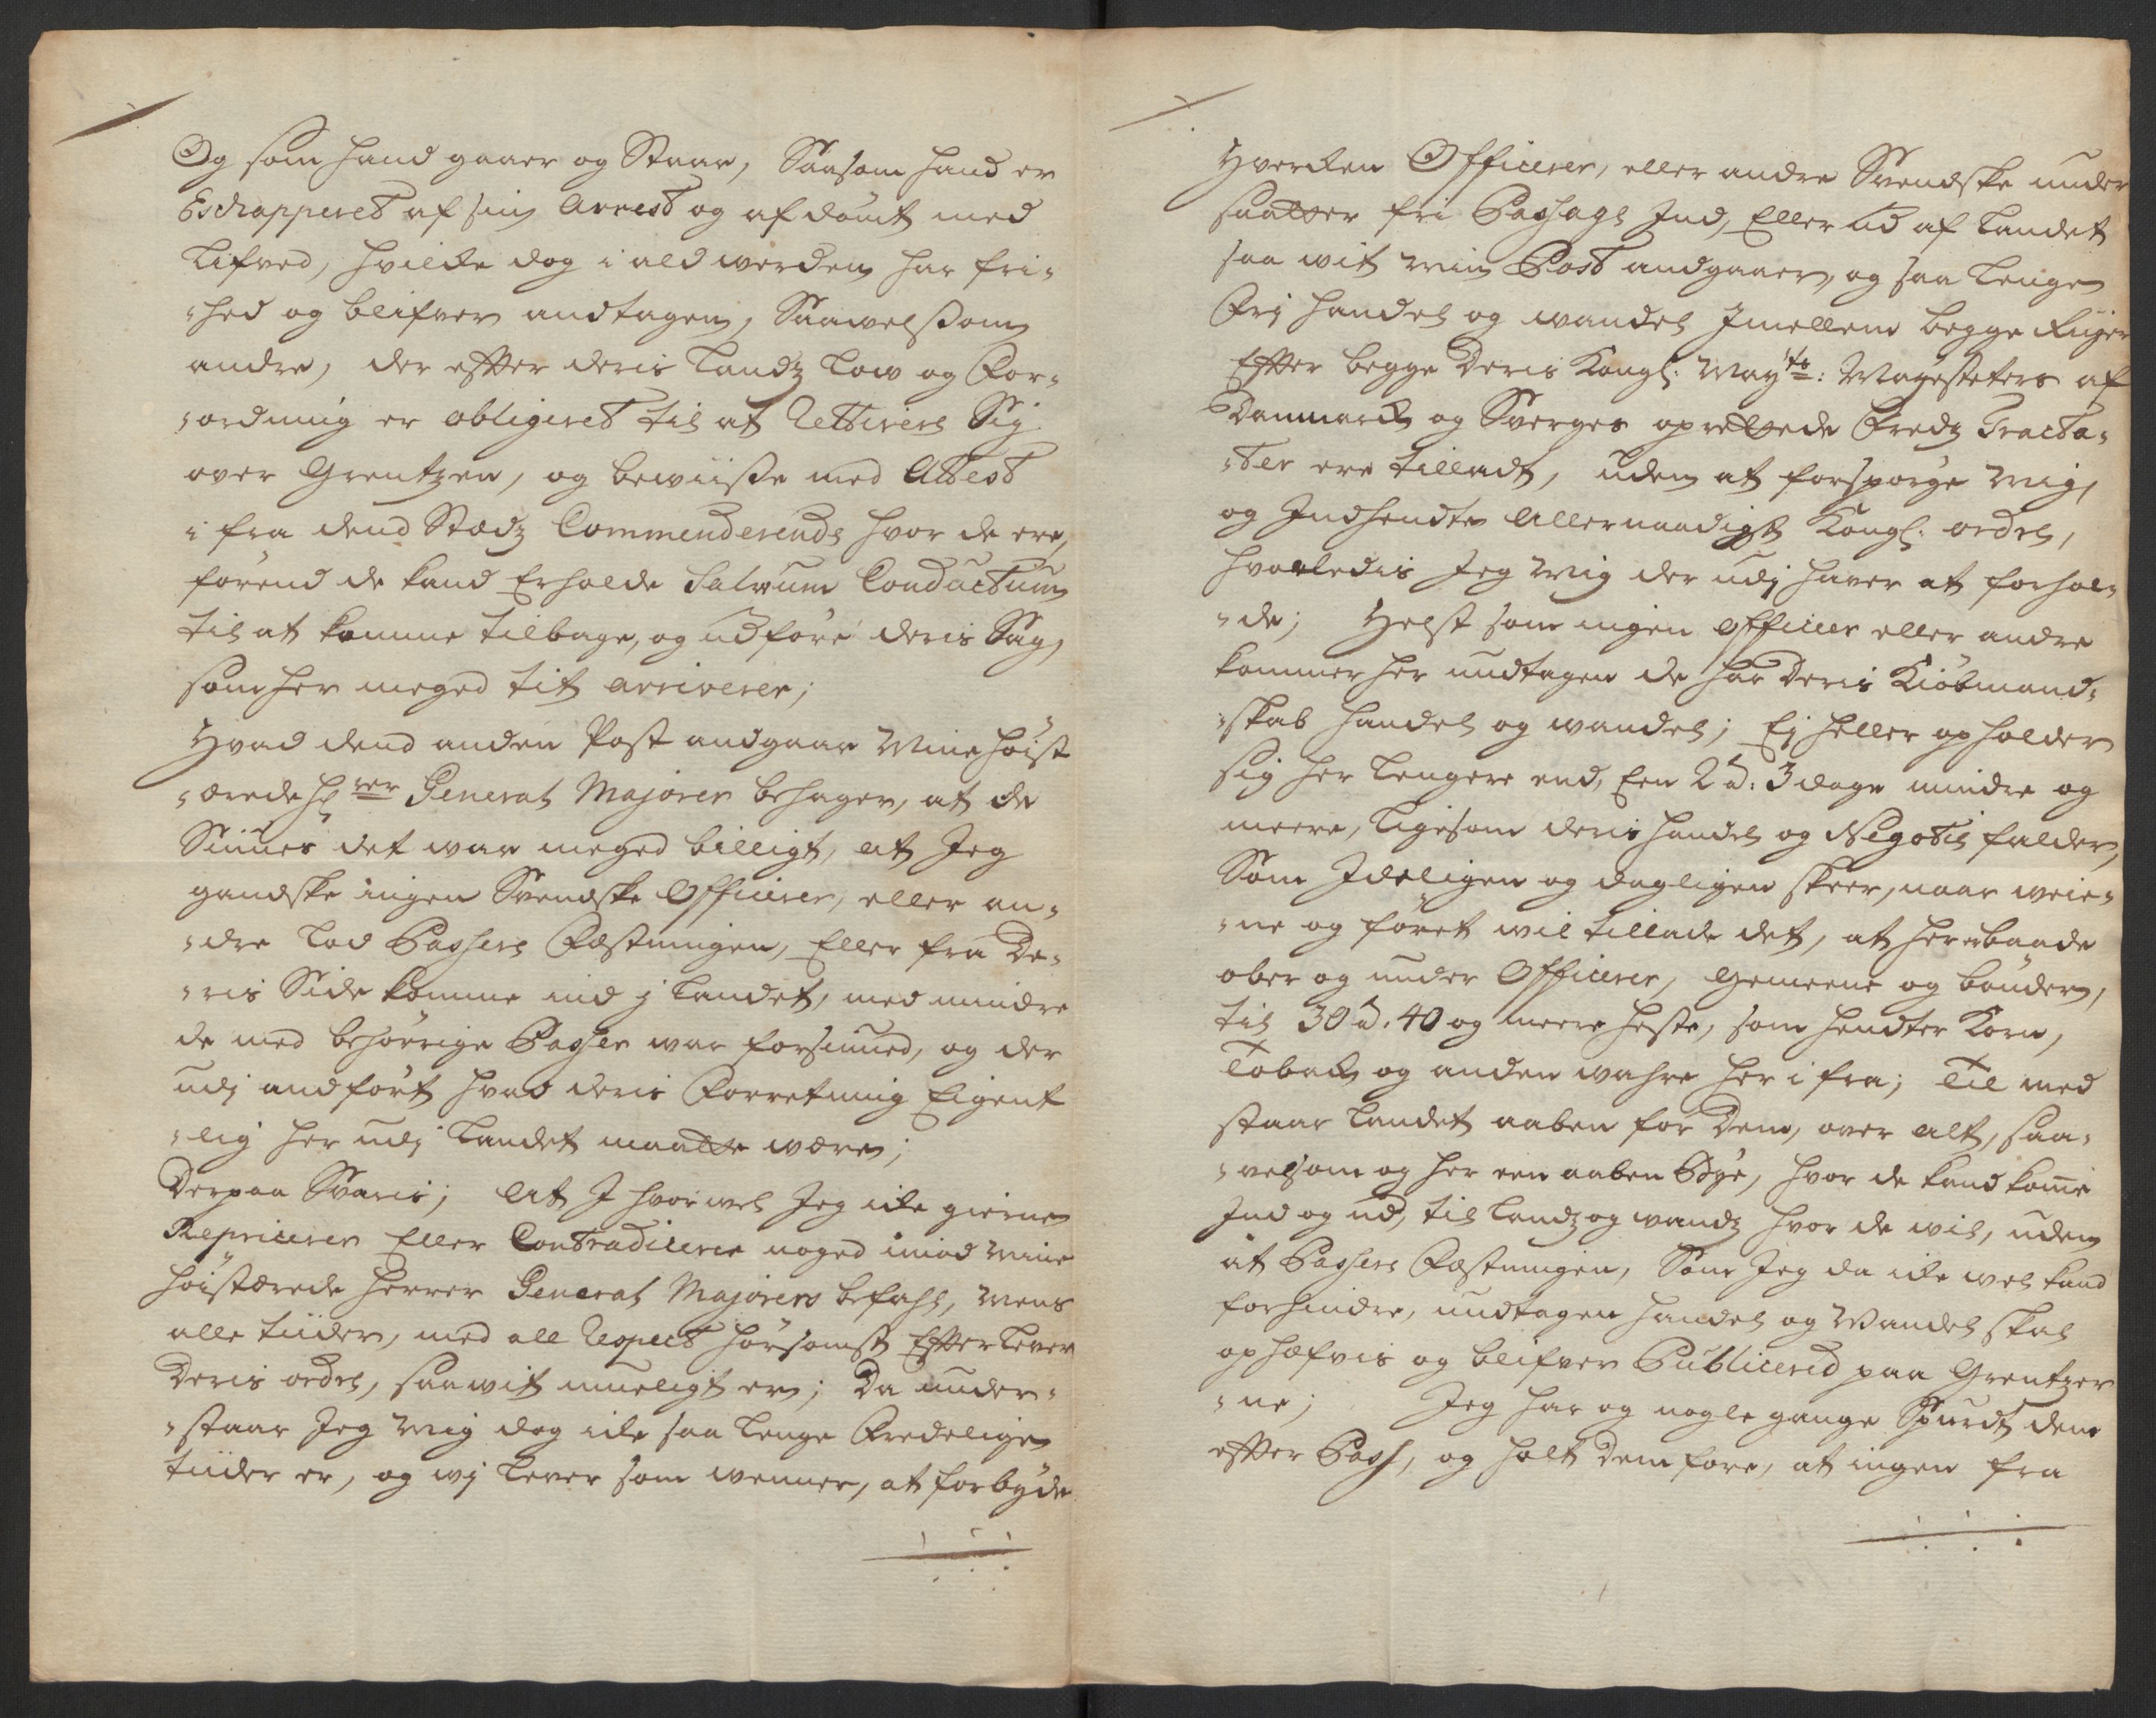 Og som hand gaaer og Staar, Saasom hand er
Eschapperet af sin Arrest og afdömt med
Lifved, hvilke dog i ald werden har fri-
-hed og blifver andtagen, Saawelsom
andre, der efter deris Landz Low og For-
-ordning er obligeret til at Rettirere Sig
over Grentzen, og bewiisse med Attest
i fra dend Stædz Commenderende hvor de ere,
förend de kand Erholde Salvum Conductum
til at komme tilbage, og udföre deris Sag,
som her meged tit arriverer;
Hvad dend anden Post andgaar Mine höist
-ærede Hrrer General Majorer behager, at de
Siunes det war meged billigt, at Jeg
gandske ingen Svendske Officerer, eller an-
-dre lod Passere Fæstningen, Eller fra De-
-ris Side komme ind j Landet, med mindre
de med behörrige Passer war forsiuned, og der
udj andfört hvad deris Forretning Eigent
-lig her udj Landet maatte wære;
Derpaa Svaris; At J hvorwel Jeg icke gierne
Repricerer Eller Contradicerer noged imod Mine
höistærede Herrer General Majorers befahl, Mens
alle tiider, med all Respect hörsomst Efterlever
Deris ordre, saawit mueligt er; Da under-
-staar Jeg Mig dog icke saa lenge Fredelige
tiider er, og wj lever som wenner, at forbyde
Hvercken Officerer, eller andre Svendske under
saatter fri Passage Ind, Eller ud af Landet
saa wit min Post andgaaer, og saa lenge
Frj handel og wandel Imellem begge Riiger
Efter begge Deris Kongl: May:ts: Mayesteters af
Danmarck og Sverges oprettede Freds Tracta-
-ter ere tilladt, uden at forspörge Mig,
og Indhendte Allernaadigst Kongl: ordre,
hvorledis Jeg Mig der udj haver at forhol-
-de; Helst som ingen officer eller andre
kommer her undtagen de har Deris Kiöbmand-
-skab handel og wandel; Ej heller opholder
sig her lengere end, Een 2 a: 3 dage mindre og
meere, ligesom deris handel og Negotie falder,
Som Ideligen og dagligen skeer, naar weie-
-ne og föret wil tillade det, at her er baade
ober og under Officerer, gemeene og bönder,
til 30 a. 40 og meere heste, som hendter Korn,
Toback og anden wahre her i fra; Til med
staar Landet aaben for Dem, over alt, saa-
-velsom og her een aaben Bÿe, hvor de kand kom̄e
Ind og ud, til Landz og wandz hvor de wil, uden
at Passere Fæstningen, Som Jeg da icke wel kand
forhindre, undtagen handel og Wandel skal
ophæfvis og blifver Publicered paa Grentzer
-ne; Jeg har og nogle gange Spurdt dem
efter Pass, og holt Dem fore, at ingen fra